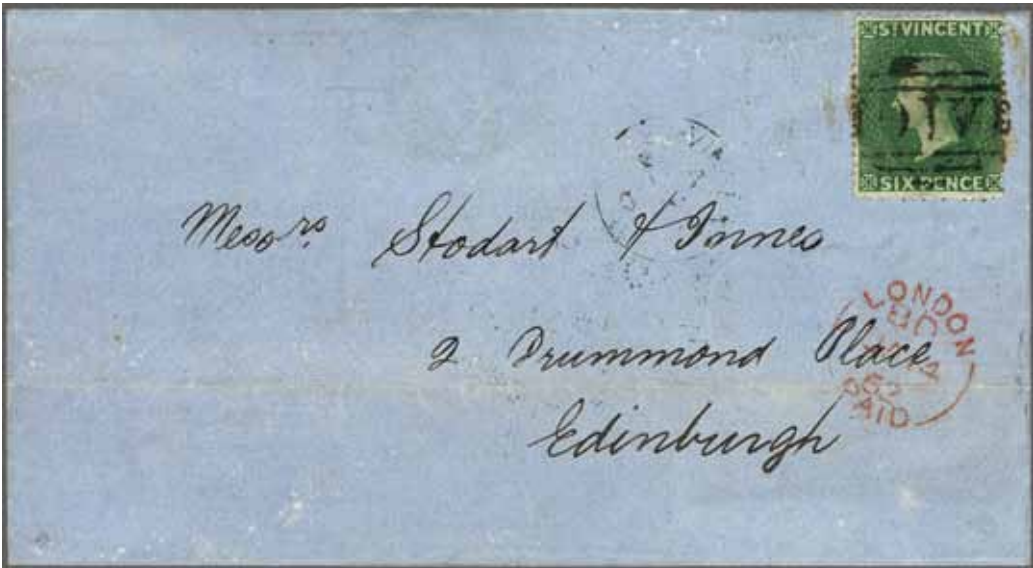 ST VINCENT
SIX PENCE
Messrs Stodart & Innes
2 Drummond Place
Edinburgh
LONDON
PAID